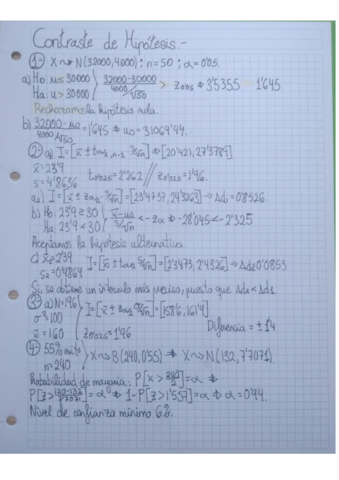 Contraste de Hipótesis.-
1- X~N(32000,4000); n=50; α=0'05.
a) Ho: u≤30000 } 32000-30000 / 4000/√50 > zobs → 3'5355 > 1'645
Ha: u>30000
Rechazamos la hipótesis nula.
b) 32000-uo / 4000/√50 = 1'645 → uo = 31069'44.
2- a) I=[x̄ ± tα/2, n-1 · s/√n] = [20'421, 27'3789]
x̄=23'9
s=4'8636
t0'025=2'262 // z0'025=1'96.
a2) I=[x̄ ± zα/2 · s/√n] = [23'4737, 24'3263] → Δd1=0'8526
b) Ho: 23'9≥30 } x̄-uo / s/√n < -zα → -28'045 < -2'325
Ha: 23'9<30
Aceptamos la hipótesis alternativa.
c) x̄=2'39
s2=0'4864
I=[x̄ ± tα/2 s/√n] = [2'3473, 2'4326] → Δd2=0'0853
Sí, se obtiene un intervalo más preciso, puesto que Δd2<Δd1
3- a) N=196
σ²=100
x̄=160
I=[x̄ ± zα/2 σ/√n] = [158'6, 161'4]
z0'025=1'96
Diferencia = ±1'4
4- 55% éxito
n=240
X~B(240, 0'55) → X~N(132, 7'7071).
Probabilidad de mayoría: P[X > 240/2] = α →
P[Z > 120-132 / 7'7071] = α → 1-P[Z>1'557] = α → α=0'94.
Nivel de confianza mínimo 6%.